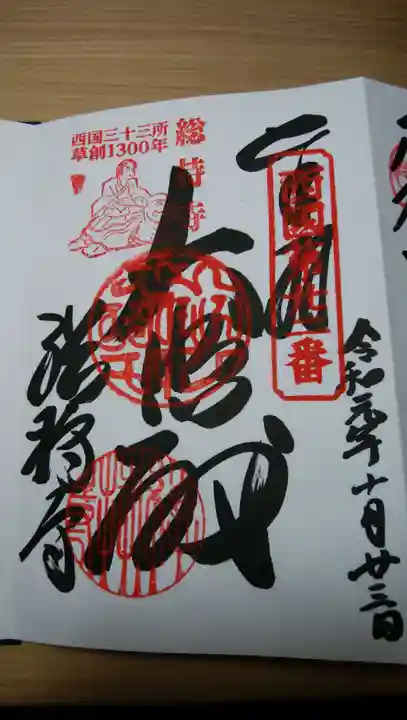 令和元年十月廿三日
西国第廿二番
大悲殿
総持寺
西国三十三所
草創1300年
総持寺